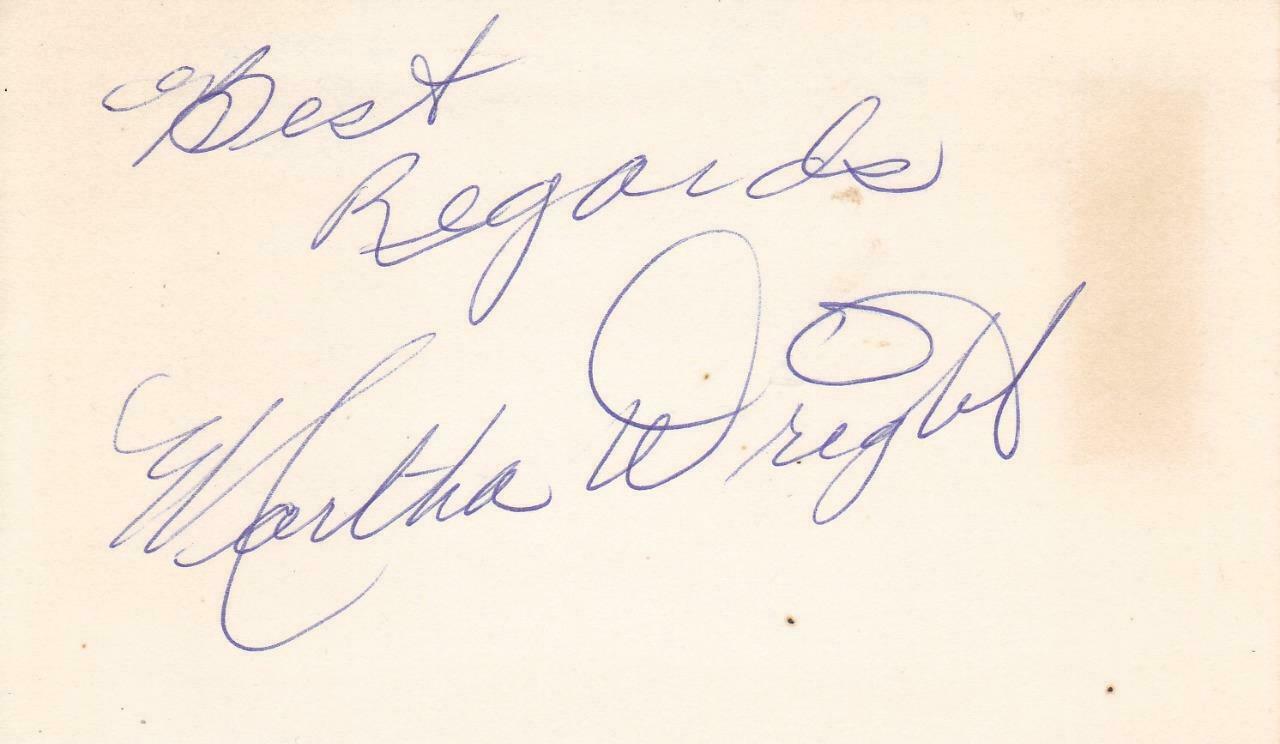 Best
Regards
Martha Wright